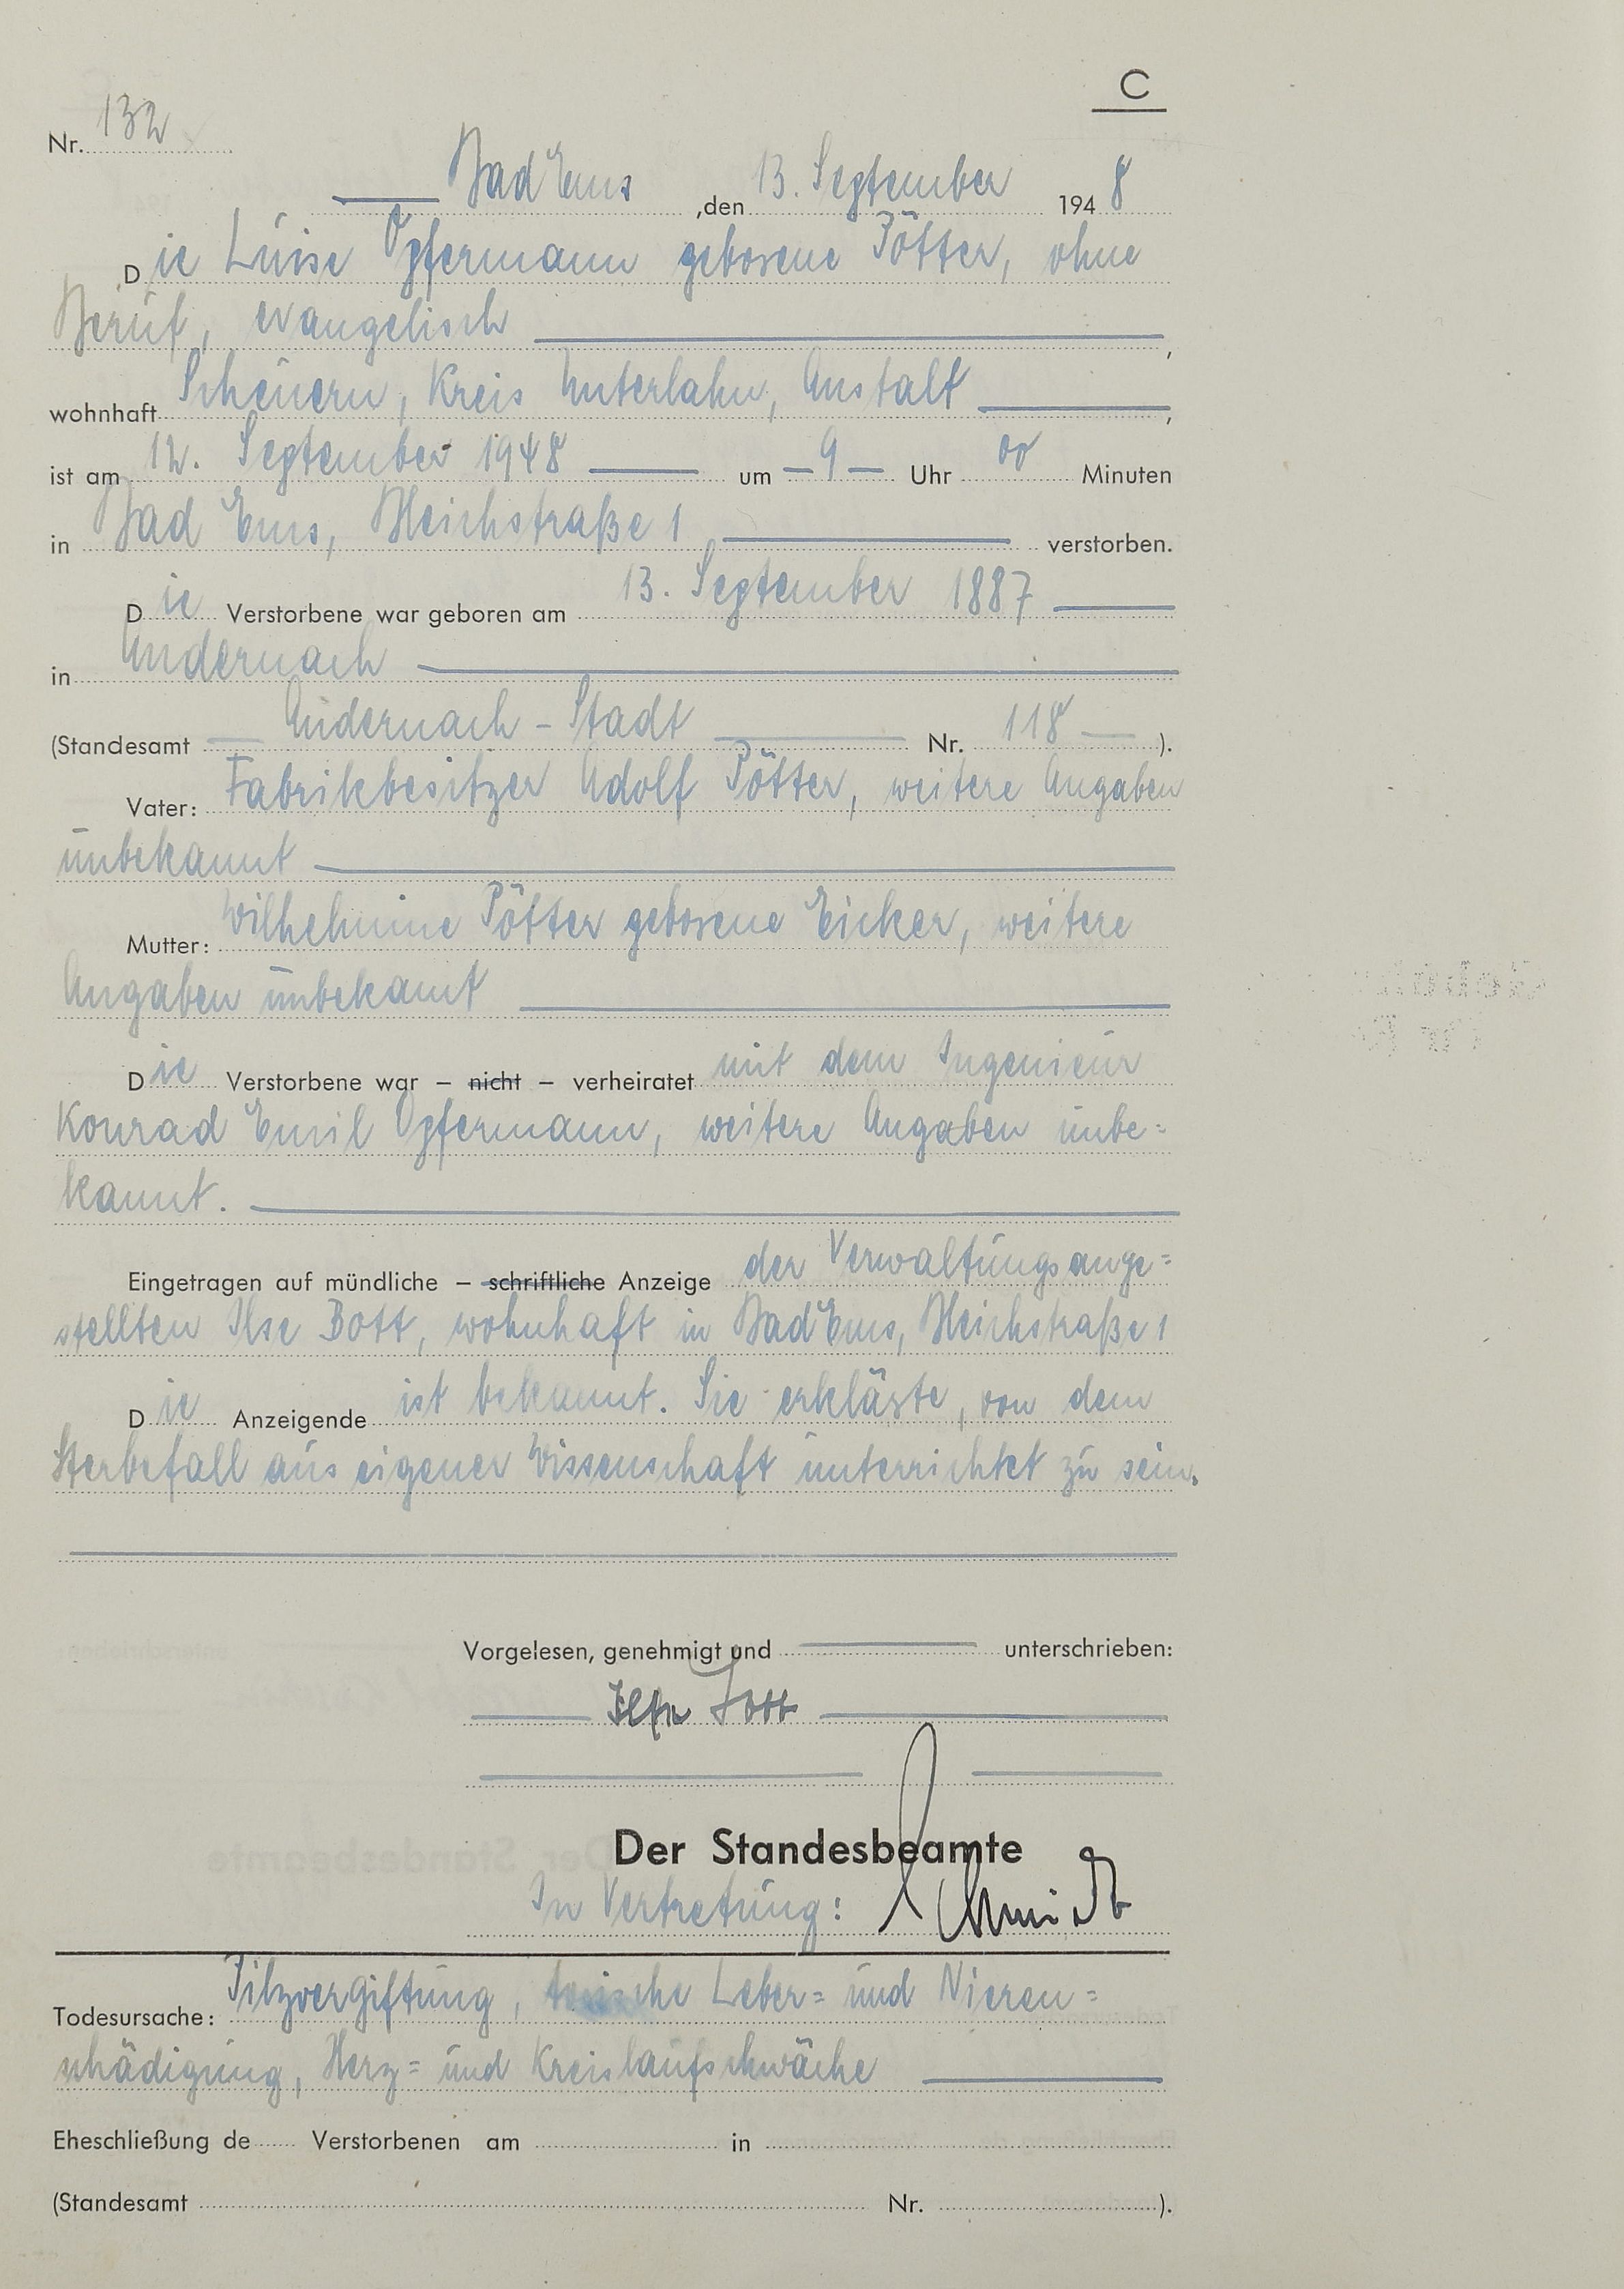 C
Nr. 132
Bad Ems, den 13. September 1948
Die Luise Opfermann geborene Pötter, ohne
Beruf, evangelisch,
wohnhaft Scheuern, Kreis Unterlahn, Anstalt,
ist am 12. September 1948 um 9 Uhr 00 Minuten
in Bad Ems, Bleichstraße 1 verstorben.
Die Verstorbene war geboren am 13. September 1887
in Andernach
(Standesamt Andernach - Stadt Nr. 118).
Vater: Fabrikbesitzer Adolf Pötter, weitere Angaben
unbekannt
Mutter: Wilhelmine Pötter geborene Eicker, weitere
Angaben unbekannt
Die Verstorbene war – nicht – verheiratet mit dem Ingenieur
Konrad Emil Opfermann, weitere Angaben unbe=
kannt.
Eingetragen auf mündliche – schriftliche Anzeige der Verwaltungsange=
stellten Ilse Bott, wohnhaft in Bad Ems, Bleichstraße 1
Die Anzeigende ist bekannt. Sie erklärte, von dem
Sterbefall aus eigener Wissenschaft unterrichtet zu sein.
Vorgelesen, genehmigt und unterschrieben:
Ilse Bott
Der Standesbeamte
In Vertretung: Schmidt
Todesursache: Pilzvergiftung, toxische Leber= und Nieren=
schädigung, Herz= und Kreislaufschwäche
Eheschließung de Verstorbenen am in
(Standesamt Nr. ).